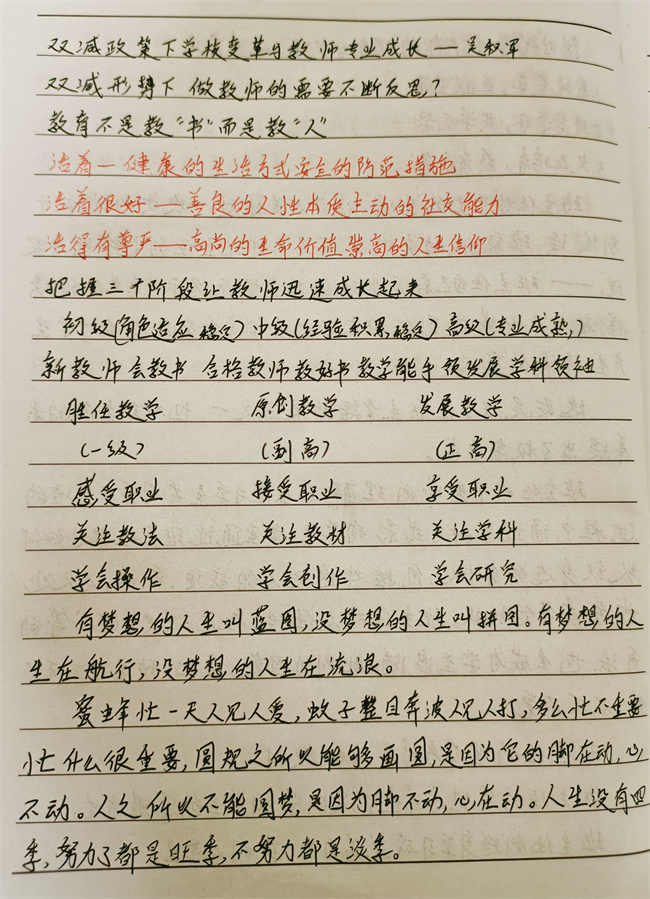 双减政策下学校变革与教师专业成长——吴积军
双减形势下做教师的需要不断反思?
教育不是教“书”而是教“人”
活着—健康的生活方式安全的防范措施
活着很好—善良的人性本质主动的社交能力
活得有尊严——高尚的生命价值崇高的人生信仰
把握三个阶段让教师迅速成长起来
初级(角色适应 稳定) 中级(经验积累稳定) 高级(专业成熟)
新教师会教书 合格教师教好书教学能手领发展学科领袖
胜任教学 原创教学 发展教学
(一级) (副高) (正高)
感受职业 接受职业 享受职业
关注教法 关注教材 关注学科
学会操作 学会创作 学会研究
有梦想的人生叫蓝图,没梦想的人生叫拼图。有梦想的人
生在航行,没梦想的人生在流浪。
蜜蜂忙一天人见人爱,蚊子整日奔波人见人打,多么忙不重要
忙什么很重要,圆规之所以能够画圆,是因为它的脚在动,心
不动。人之所以不能圆梦,是因为脚不动,心在动。人生没有四
季,努力了都是旺季,不努力都是淡季。